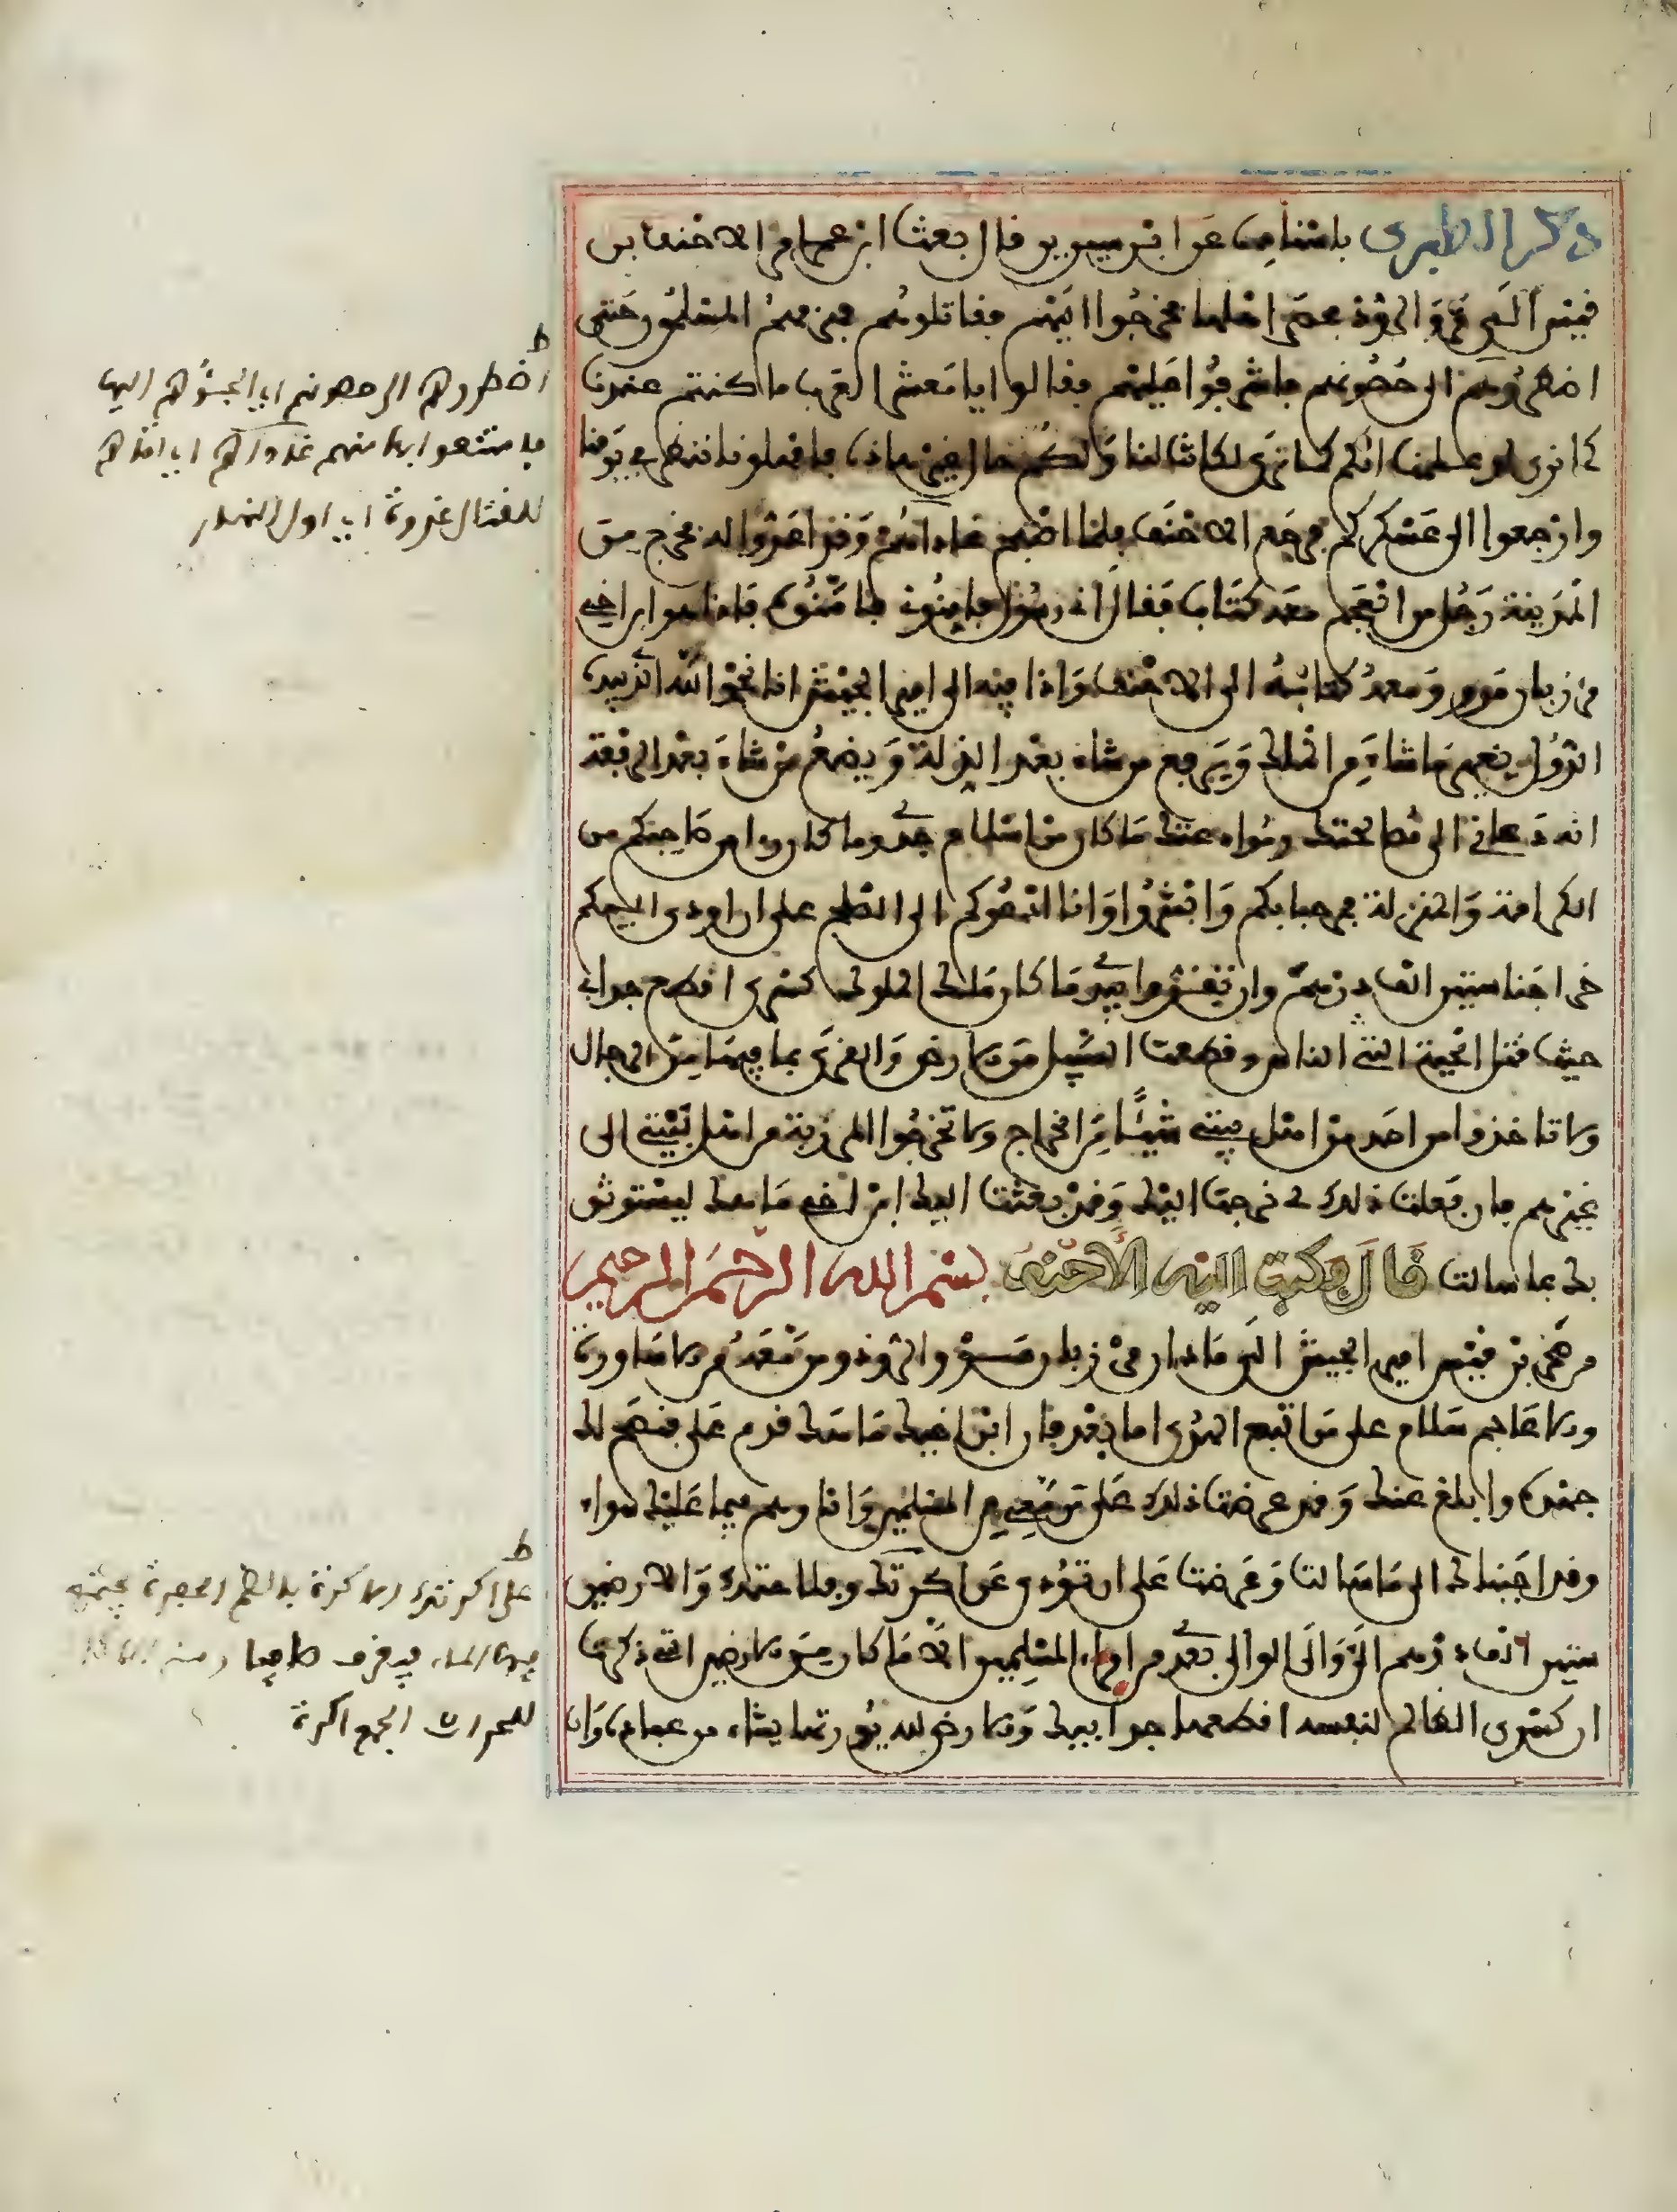 ذكر الطبري باسناده عن ابن سيرين قال بعث ابن عامر الاحنف بن
قيس الى مرو الروذ فحصر اهلها فخرجوا اليهم فقاتلوهم فهزمهم المسلمون حتى
اضطروهم الى حصونهم فاشرفوا عليهم فقالوا يا معشر العرب ما كنتم عندنا
كما نرى لو علمنا انكم كما نرى لكانت لنا ولكم حال غير هذه فامهلونا ننظر في يومنا
وارجعوا الى عسكركم فرجع الاحنف فلما اصبح غاداهم وقد اعدوا له فخرج من
المدينة رجل من العجم معه كتاب فقال اني رسول فامنوني فامنوه فاذا هو ابن اخي
مرزبان مرو ومعه كتابه الى الاحنف واذا فيه الى امير الجيش انا نحمد الله الذي بيده
الدول يغير ما شاء من الملك ويرفع من شاء بعد الذلة ويضع من شاء بعد الرفعة
انه دعاني الى مصالحتك وموادعتك ما كان من اسلام جدي وما كان راى من صاحبكم من
الكرامة والمنزلة فمرحبا بكم وابشروا وانا ادعوكم الى الصلح على ان اودي اليكم
خراجنا ستين الف درهم وان تقروا بيدي ما كان ملك الملوك كسرى اقطع جد ابي
حيث قتل الحية التي الناس وقطعت السبيل من الارض والقرى بما فيها من الرجال
ولا تاخذوا من احد من اهل بيتي شيئا من الخراج ولا تخرجوا المرزبة من اهل بيتي الى
غيرهم فان فعلت ذلك لي خرجت اليك وقد بعثت اليك ابن اخي ماهك ليستوثق
بك بما سالت قال فكتب اليه الاحنف بسم الله الرحمن الرحيم
من صخر بن قيس امير الجيش الى ماهان مرزبان مرو الروذ ومن معه من الاساورة
والاعاجم سلام على من اتبع الهدى اما بعد فان ابن اخيك ماهك قدم علي فنصح لك
جهده وابلغ عنك وقد عرضت ذلك على من معي من المسلمين وانا وهم فيما عليك سواء
وقد اجبناك الى ما سالت وعرضت على ان تؤدي عن اكرتك وفلاحتك والارضين
ستين الف درهم الي والى الوالي بعدي من امراء المسلمين الا ما كان من الارضين التي ذكرت
ان كسرى الظالم لنفسه اقطعها جد ابيك والارض لله يورثها من يشاء من عباده وان
ط
اضطروهم الى حصونهم اي الجئوهم اليها
فامتنعوا بها منهم غاداهم اي اتاهم
للقتال غدوة اي اول النهار
ط
على اكرتك الاكرة بالضم الحفرة يجتمع
فيها الماء فيغرف صافيا ومنه
للحراث الجمع اكرة